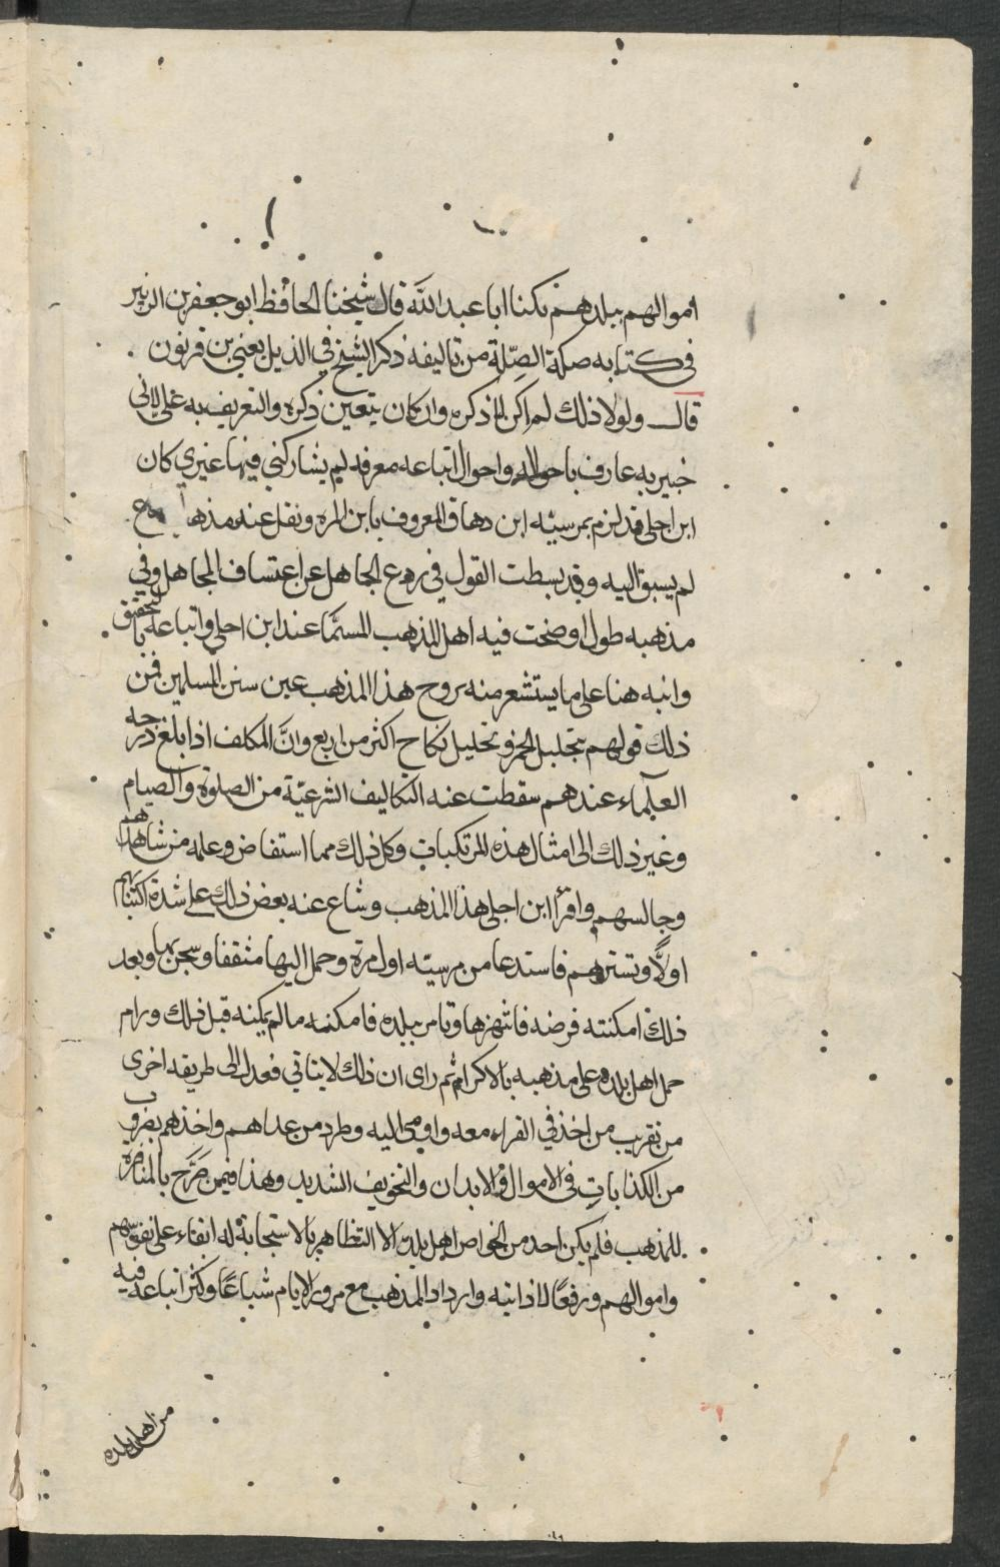 اموالهم ببلدهم يكنا ابا عبد الله قال شيخنا الحافظ ابو جعفر بن الزبير
في كتابه صلة الصِّلة من تاليفه ذكر الشيخ في الذيل يعني بن فرتون
قال ولولا ذلك لم اكن لاذكره وان كان يتعين ذكره والتعريف به على لاني
خبير به عارف باحواله واحوال اتباعه معرفه لم يشاركني فيها غيري كان
ابن احلى قد لزم بمرسيه ابن دهاق المعروف بابن المره ونقل عنه مذهبا
لم يسبق اليه وقد بسطت القول في ردع الجاهل عن اعتساف المجاهل وفي
مذهبه طول اوضحت فيه اهل المذهب المسمَّا عند ابن احلى واتباعه بالتحقيق
وانبه هنا على ما يستشعر منه بروح هذا المذهب عين سنن المسلمين فمن
ذلك قولهم بتحليل الخمر وتحليل نكاح اكثر من اربع وانَّ المكلف اذا بلغ درجه
العلماء عندهم سقطت عنه التكاليف الشرعيّة من الصلوة والصيام
وغير ذلك الى امثال هذه المرتكبات وكل ذلك مما استفاض وعلمه من شاهدهم
وجالسهم واقرأ ابن احلى هذا المذهب وشاع عنه بعض ذلك على شدة اكتتامهم
اولاً وتسترهم فاستدعا من مرسيته اول مرة وحمل اليها مثقفا وسجن بها وبعد
ذلك امكنته فرضه فانتهزها وتامر ببلده فامكنه ما لم يمكنه قبل ذلك ورام
حمل اهل بلده على مذهبه بالاكرام ثم راى ان ذلك لا يتاتي فعدل الى طريقه اخرى
من تقريب من اخذ في القراءه معه واوى اليه وطرد من عداهم واخذهم بضروب
من الكذاباتِ في الاموال والابدان والتخويف الشديد وهذا فيمن صَرَّح بالمناضره
للمذهب فلم يكن احد من الخواص اهل بلده الا التظاهر بالاستجابة له ابقاء على نفوسهم
واموالهم ورفعًا لاذايته وازداد المذهب مع مرور الايام شباعًا وكثر اتباعه فيه
من اهل بلده